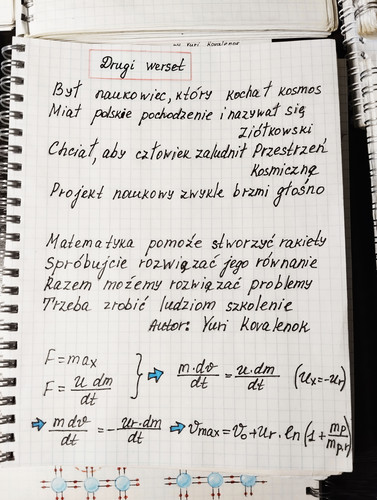 w Yuri Kovalenok
Drugi werset
Był naukowiec, który kochał kosmos
Miał polskie pochodzenie i nazywał się
Ziółkowski
Chciał, aby człowiek zaludnił Przestrzeń
Kosmiczną
Projekt naukowy zwykle brzmi głośno
Matematyka pomoże stworzyć rakiety
Spróbujcie rozwiązać jego równanie
Razem możemy rozwiązać problemy
Trzeba zrobić ludziom szkolenie
Autor: Yuri Kovalenok
F = maₓ
F = u dm/dt } ⇒ m·dv/dt = u·dm/dt (uₓ = -uᵣ)
⇒ m dv/dt = - uᵣ·dm/dt ⇒ vmax = v₀ + uᵣ·ln(1 + mp/mp.r)